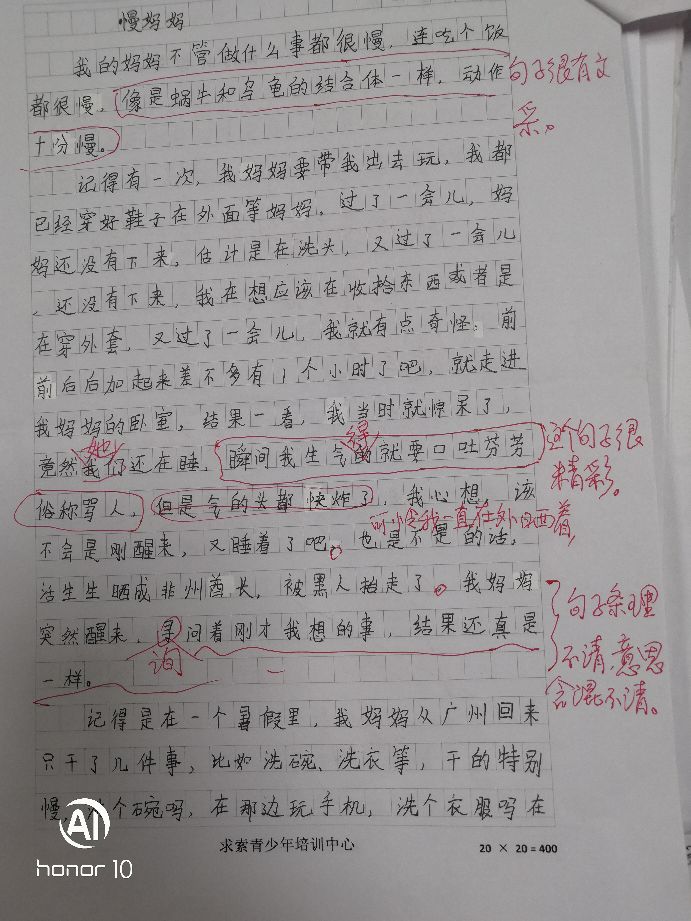 慢妈妈
我的妈妈不管做什么事都很慢，连吃个饭
都很慢，像是蜗牛和乌龟的结合体一样，动作
十分慢。
句子很有文
采。
记得有一次，我妈妈要带我出去玩，我都
已经穿好鞋子在外面等妈妈。过了一会儿，妈
妈还没有下来，估计是在洗头，又过了一会儿
，还没有下来，我在想应该在收拾东西或者是
在穿外套，又过了一会儿，我就有点奇怪，前
前后后加起来差不多有1个小时了吧，就走进
我妈妈的卧室，结果一看，我当时就惊呆了，
她
得
竟然我们还在睡，瞬间我生气的就要口吐芬芳
俗称骂人，但是气的头都快炸了，我心想，该
这个句子很
精彩。
可怜我一直在外面晒着，
不会是刚醒来，又睡着了吧。也是不是的话，
活生生晒成非州酋长，被黑人抬走了。我妈妈
突然醒来，寻问着刚才我想的事，结果还真是
询
一样。
句子条理
不清，意思
含混不清。
记得是在一个暑假里，我妈妈从广州回来
只干了几件事，比如洗碗、洗衣等，干的特别
慢，个碗吗，在那边玩手机，洗个衣服吗在
求索青少年培训中心
20 × 20 = 400
AI
honor 10